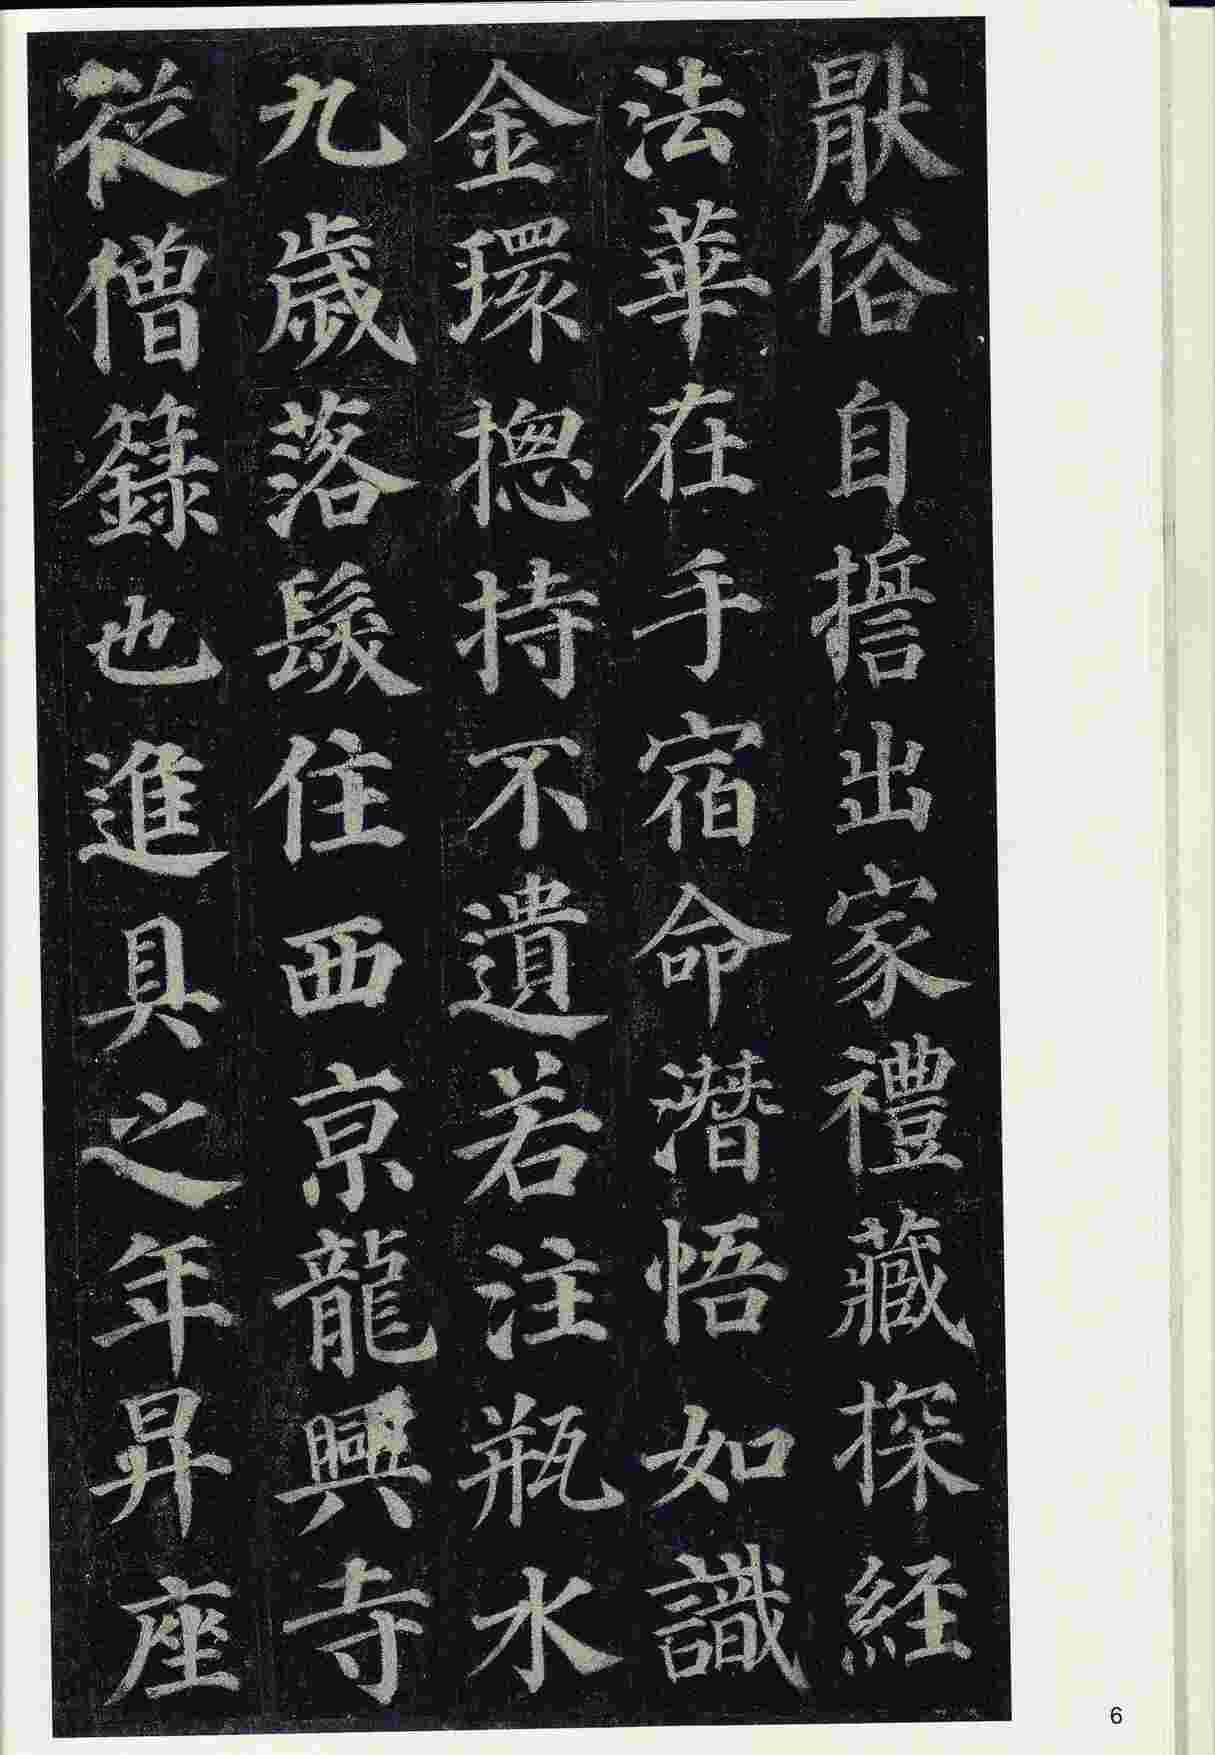 猒俗自誓出家禮藏探經
法華在手宿命潛悟如識
金環揔持不遺若注瓶水
九歲落髮住西京龍興寺
從僧籙也進具之年昇座
6